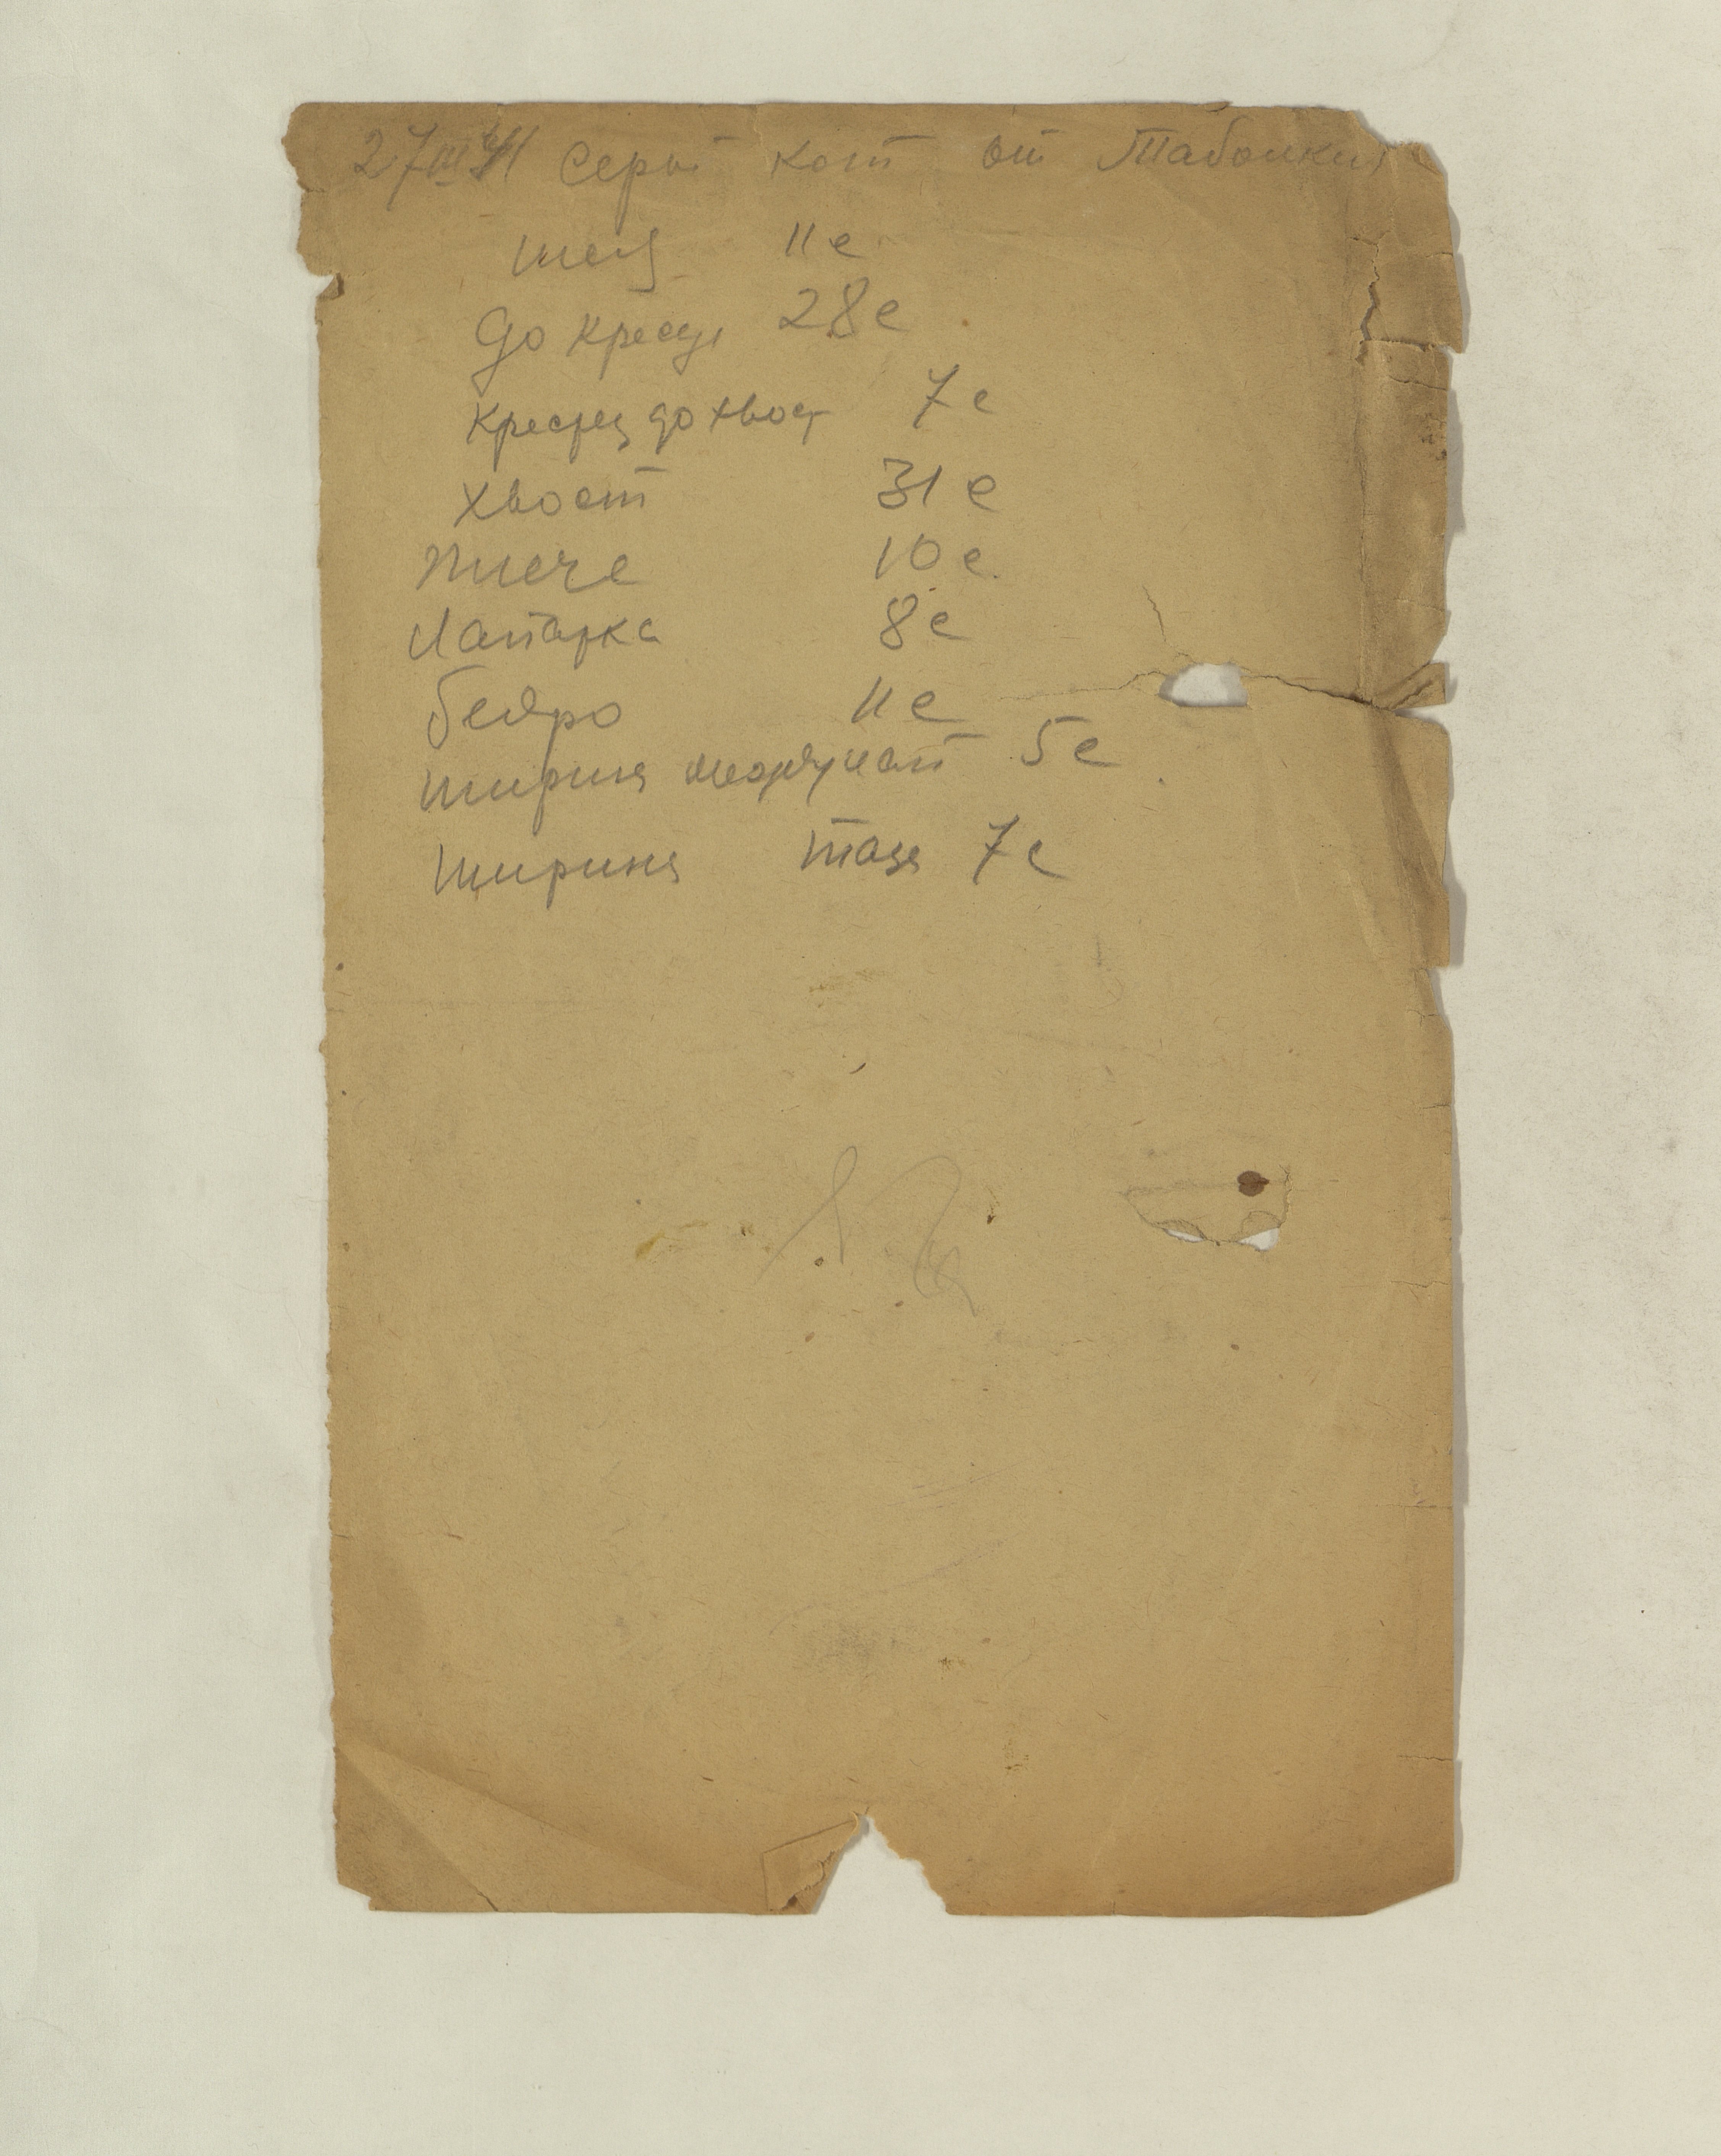 27 III 41 серый кот от Таболкин
шея 11 с
до кресц 28 с
Крестец до хвост 7 с
хвост 31 с
плече 10 с
Лапатка 8 с
бедро 11 с
ширина 5 с
ширина таза 7 с